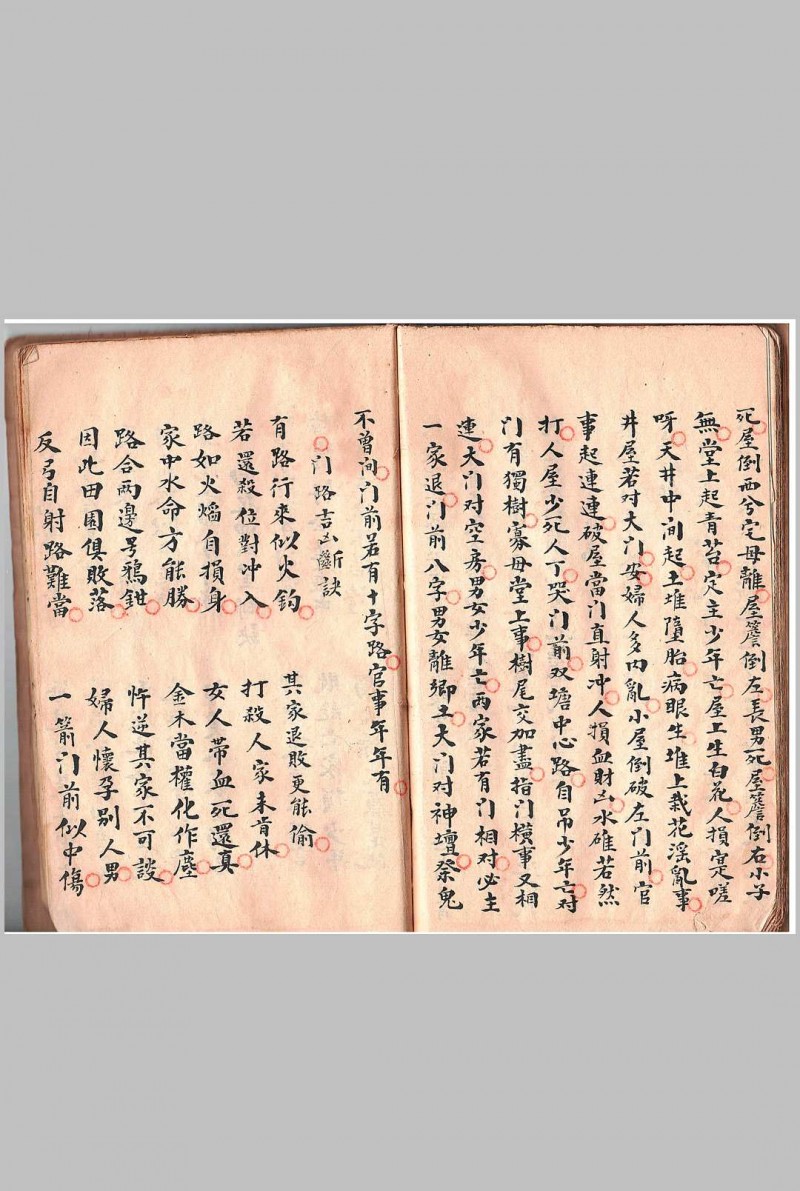 死屋倒西兮宅母離屋簷倒左長男死屋簷倒右小子
無堂上起青苔定主少年亡屋上生白花人損寔嗟
呀天井中间起土堆墮胎病眼生堆上栽花淫亂事
井屋若对大门安婦人多内亂小屋倒破左门前官
事起連連破屋當门直射冲人損血財凶水碓若然
打人屋少死人丁哭门前双塘中心路自吊少年亡对
门有獨樹寡母堂上事樹尾交加盡指门橫事又相
連大门对空房男女少年亡两家若有门相对必主
一家退门前八字男女離鄉土大门对神壇祭鬼
不曾间门前若有十字路官事年年有
门路吉凶斷訣
有路行來似火鈎 其家退敗更能偷
若還殺位對冲入 打殺人家未肯休
路如火熖自損身 女人带血死還真
家中水命方能勝 金木當權化作塵
路合两邊号鴉鉗 忤逆其家不可談
因此田園俱敗落 婦人懷孕別人男
反弓自射路難當 一箭门前似中傷